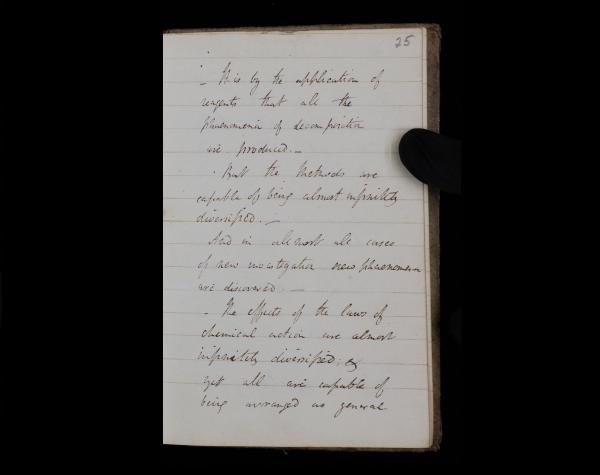 25
– It is by the application of
reagents that all the
phaenomena of decomposition
are produced. –
· But the Methods are
capable of being almost infinitely
diversified. –
And in allmost all cases
of new investigation new phaenomena
are discovered –
– The effects of the laws of
chemical action are almost
infinitely diversified; &
yet all are capable of
being arranged as general